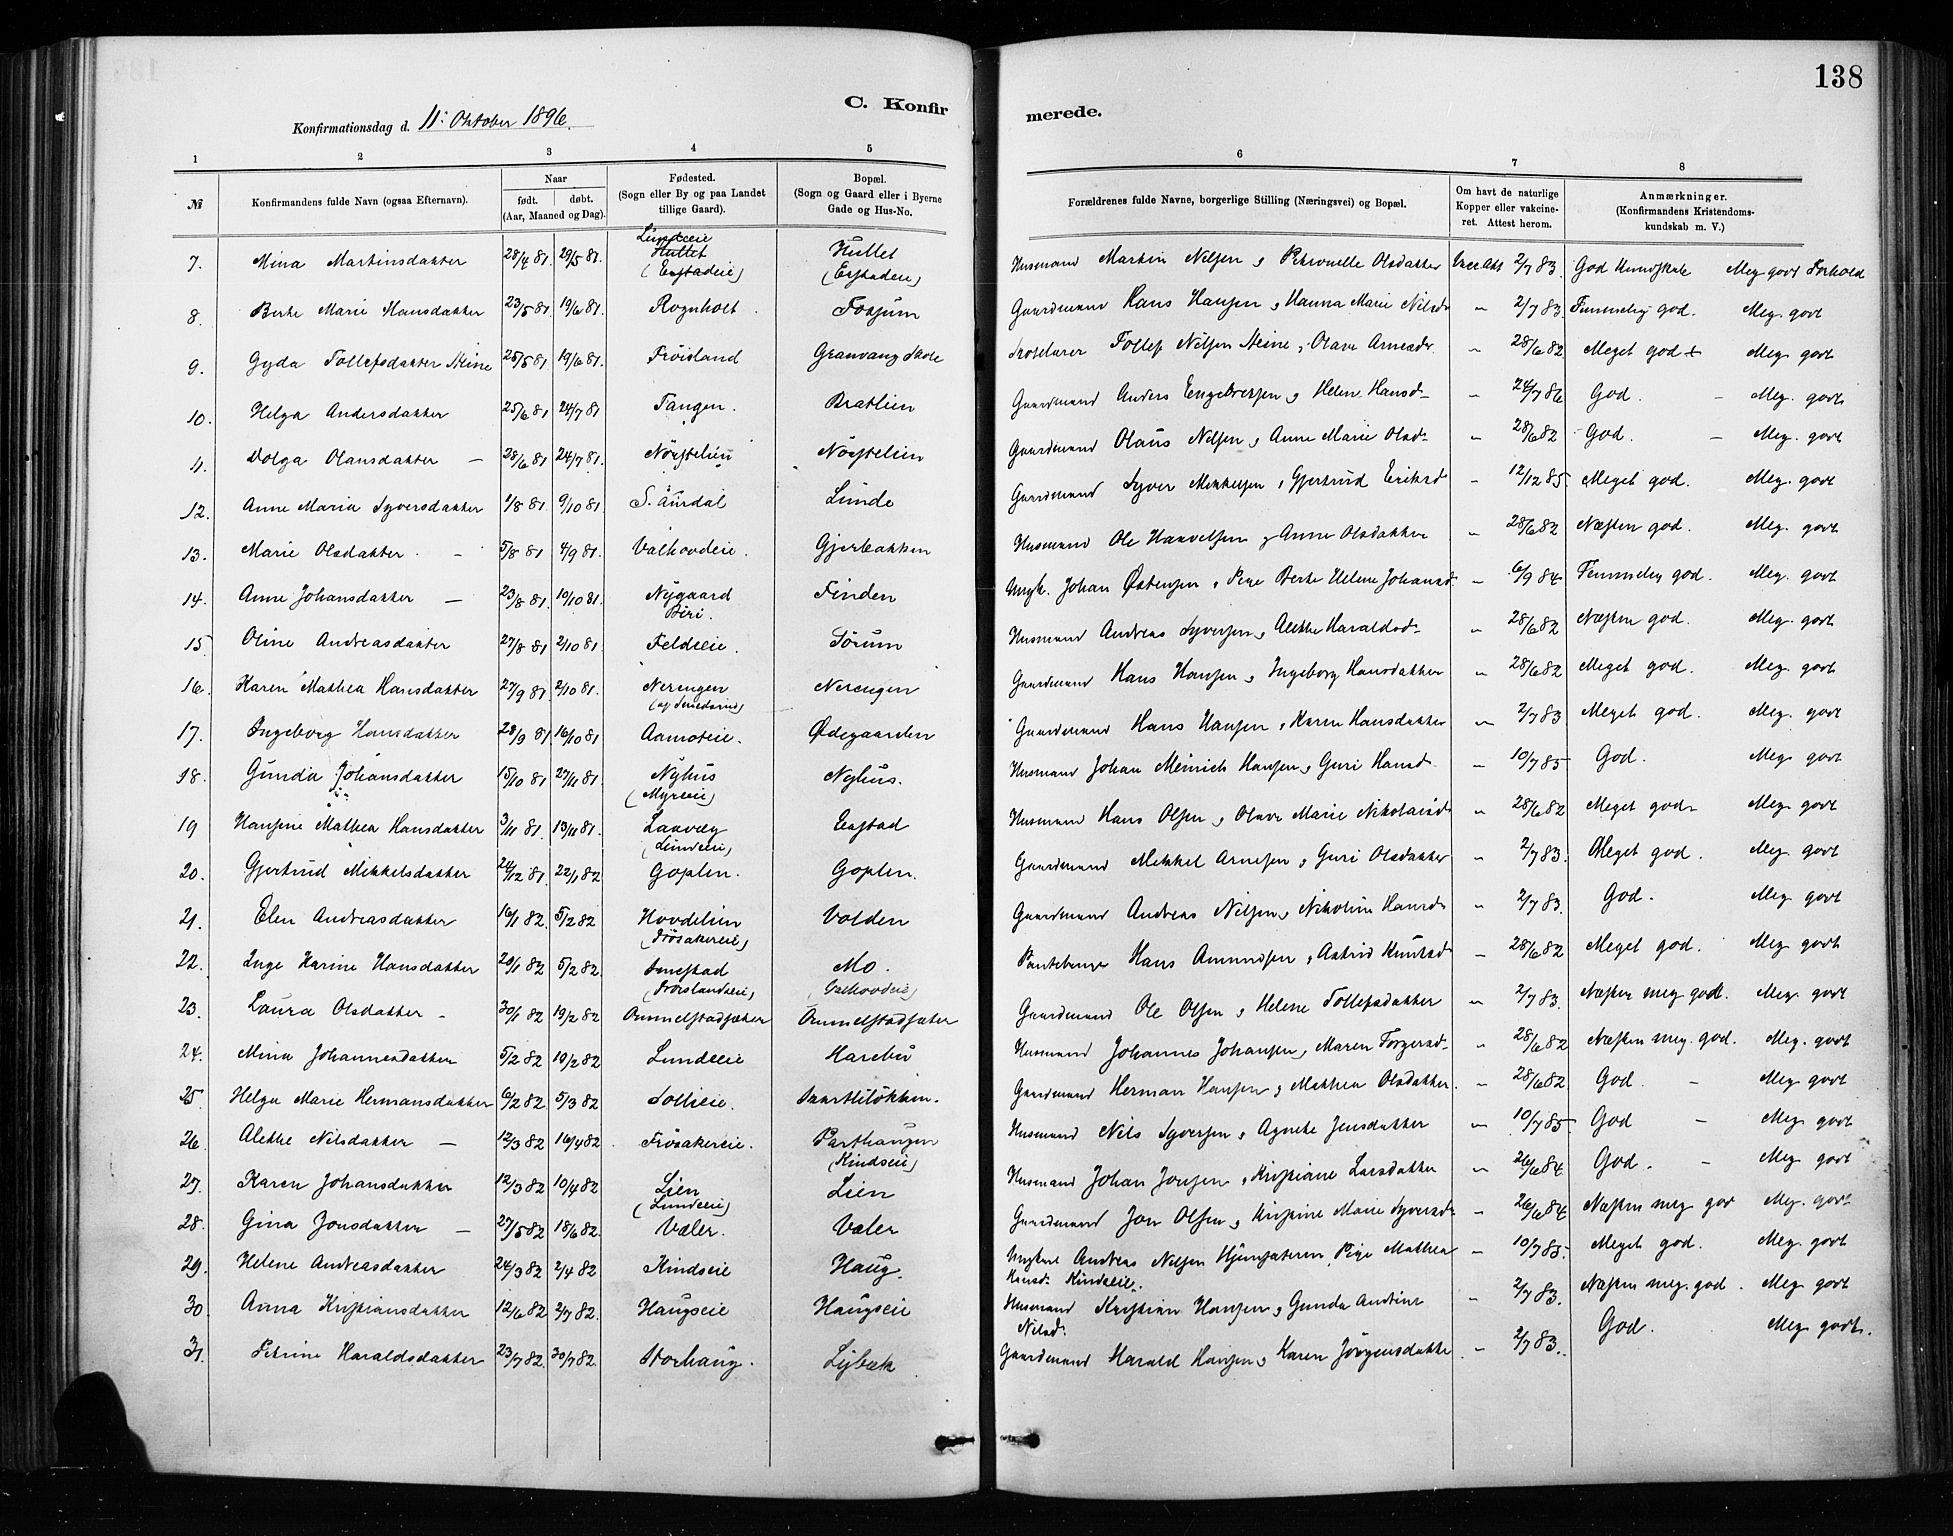 138
C. Konfir
merede.
Konfirmationsdag d. 11. Oktober 1896.
1 2 3 4 5 6 7 8
№ Konfirmandens fulde Navn (ogsaa Efternavn). Naar født. døbt. (Aar, Maaned og Dag). Fødested. (Sogn eller By og paa Landet tillige Gaard). Bopæl. (Sogn og Gaard eller i Byerne Gade og Hus-No. Forældrenes fulde Navne, borgerlige Stilling (Næringsvei) og Bopæl. Om havt de naturlige Kopper eller vakcineret. Attest herom. Anmærkninger. (Konfirmandens Kristendomskundskab m. V.)
7. Mina Martinsdatter 28/4 81. 29/5 81. Lundseie Hullet (Enstadeie) Hullet (Enstadeie) Husmand Martin Nilsen og Petronelle Olsdatter 2/7 83. God Kundskab Meg. godt Forhold
8. Berte Marie Hansdatter 23/5 81. 19/6 81. Rognholt Fossum Gaardmand Hans Hansen og Hanna Marie Nilsd. " 2/7 83. Temmelig god. Meg. godt
9. Gyda Tollefsdatter Steine 25/5 81. 19/6 81. Frøisland Granvang Skole Skolelærer Tollef Nilsen Steine, Olave Arnesdr. " 28/6 82 Meget god + Meg. godt
10. Helga Andersdatter 25/6 81 24/7 81 Tangen. Bratlien Gaardmand Anders Engebretsen og Helene Hansd. " 24/7 86 God. - Meg. godt
11. Volga Olausdatter - 28/6 81 24/7 81. Nørstelien Nørstelien Gaardmand Olaus Nilsen og Anne Marie Olsd. " 28/6 82 God. - Meg. godt
12. Anne Maria Syversdatter 1/8 81 9/10 81. S. Aurdal Lunde Gaardmand Syver Mikkelsen og Gjertrud Eriksd. " 12/12 85 Meget god. Meg. godt
13. Marie Olsdatter. - 5/8 81 4/9 81. Valhovdeie. Gjerbakken Husmand Ole Haavelsen og Anne Olsdatter " 28/6 82 Næsten god. Meg. godt
14. Anne Johansdatter - 23/8 81. 10/10 81. Nygaard Biri. Finden Ungk. Johan Østensen, Pige Berte Helene Johansd. " 6/9 84 Temmelig god. Meg. godt
15. Oline Andreasdatter 27/8 81 2/10 81. Feldseie. Sørum Husmand Andreas Syversen og Alethe Haraldsd. " 28/6 82 Næsten god. Meg. godt
16. Karen Mathea Hansdatter 27/9 81 2/10 81. Nerengen Nerengen Gaardmand Hans Hansen og Ingeborg Hansdatter " 28/6 82 Meget god. Meg. godt
17. Ingeborg Hansdatter 28/9 81 16/10 81 Aamoteie. Ødegaarden Gaardmand Hans Hansen, Karen Hansdatter " 2/7 83 Meget god. Meg. godt
18. Gunda Johansdatter 15/10 81 27/11 81. Nyhus (Myreeie) Nyhus. Husmand Johan Meinich Hansen og Guri Hansd. " 10/7 85 God. Meg. godt
19 Hansine Mathea Hansdatter 3/11 81. 13/11 81. Laaveg (Lundeeie) Enstad Husmand Hans Olsen og Olave Marie Nikolaisd. " 28/6 82 Meget god. Meg. godt
20. Gjertrud Mikkelsdatter 24/12 81. 22/1 82 Goplen. Goplen. Gaardmand Mikkel Arnesen og Guri Olsdatter " 2/7 83. Meget god. Meg. godt
21. Elen Andreasdatter 16/1 82. 5/2 82 Hovdelien (Frøsakereie) Volden Gaardmand Andreas Nilsen, Nikoline Hansd. " 2/7 83. God. Meg. godt
22. Inge Karine Hansdatter 20/1 82 5/2 82. (Frøislandseie) Mo. (Valhovdeie) Hans Amundsen og Astrid Knutsd. " 28/6 82 Meget god. Meg. godt
23. Laura Olsdatter - 30/1 82 19/2 82 Ommelstadsæter Ommelstadsæter Gaardmand Ole Olsen og Helene Tollefsdatter " 2/7 83. Næsten meg. god. Meg. godt
24. Mina Johannesdatter 5/2 82 19/2 82 Lundeeie Harebu Husmand Johannes Johansen, Maren Torgersd. " 28/6 82 Næsten meg. god. Meg. godt
25. Helga Marie Hermansdatter 6/2 82 5/3 82 Sollieie. Gaardmand Herman Hansen og Mathea Olsdatter. " 28/6 82 God. - Meg. godt
26. Alethe Nilsdatter - 12/3 82 16/4 82 Frøsakereie. Parthaugen (Kindseie) Husmand Nils Syversen og Agnethe Jensdatter " 10/7 85 God - Meg. godt
27. Karen Johansdatter 12/3 82 10/4 82 Lien (Lundeeie) Lien Husmand Johan Jonsen, Kristiane Larsdatter " 26/6 84 God. - Meg. godt
28. Gina Jonsdatter - 27/5 82 18/6 82. Væler. Væler Gaardmand Jon Olsen og Kristine Marie Syversd. " 26/6 84 Næsten meg. god Meg. godt
29. Helene Andreasdatter 24/3 82 2/4 82 Kindseie Haug. Ungkarl Andreas Nilsen, Pige Mathea Hansd. Kindseie. " 10/7 85. Meget god. Meg. godt
30. Anna Kristiansdatter 12/6 82 2/7 82. Haugseie Haugseie Husmand Kristian Hansen og Gunda Andrine Nilsd. " 2/7 83. Næsten meg. god. Meg. godt
31. Petrine Haraldsdatter 23/7 82. 30/7 82. Storhaug. Lybæk Gaardmand Harald Hansen og Karen Jørgensdatter " 2/7 83. God. Meg. godt.